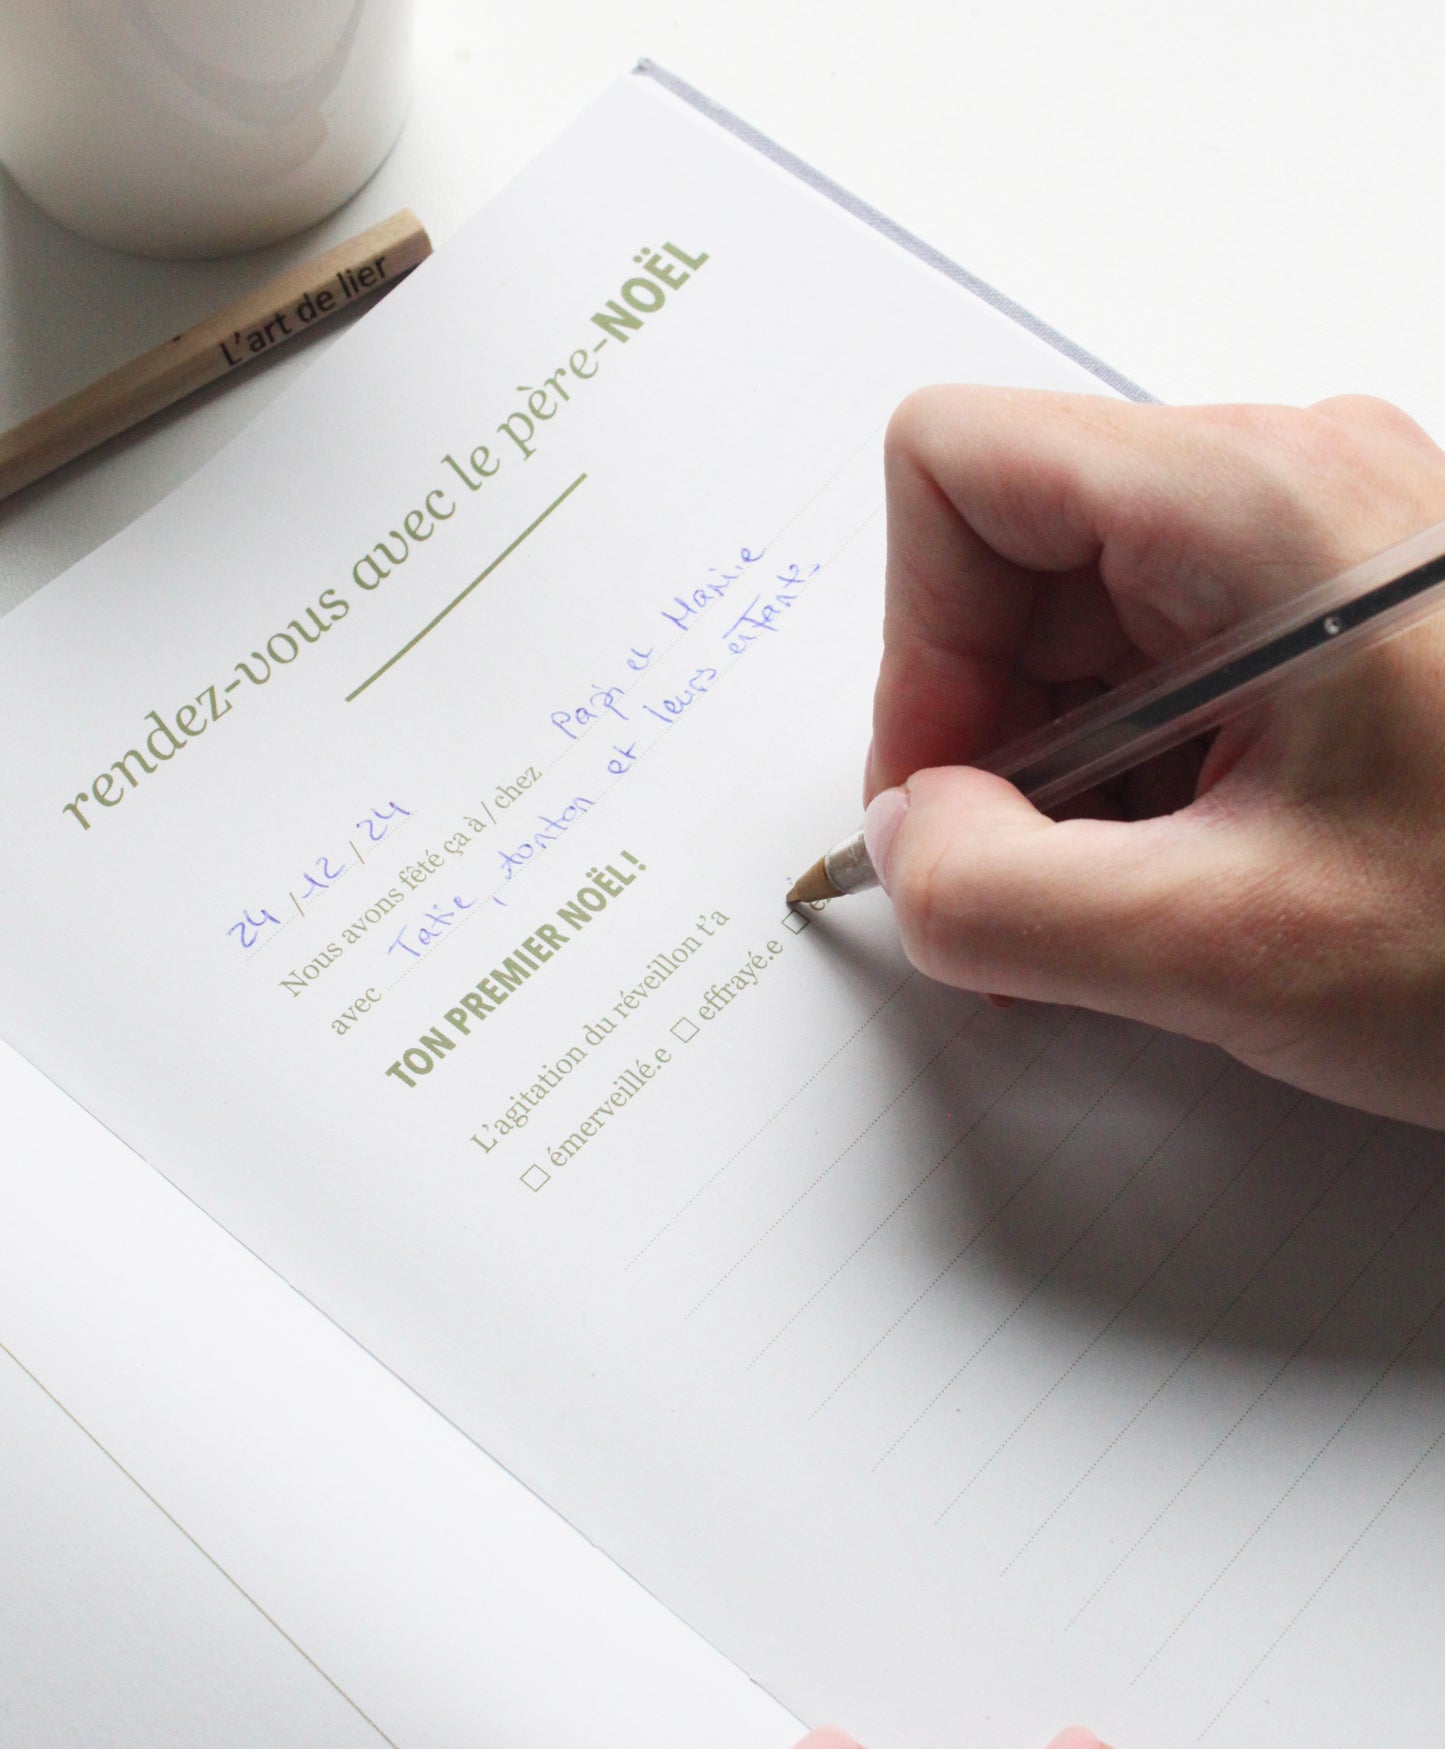 L'art de lier
rendez-vous avec le père-NOËL
24/12/24
Nous avons fêté ça à / chez Papi et Mamie
avec Tatie, tonton et leurs enfants
TON PREMIER NOËL !
L'agitation du réveillon t'a
□ émerveillé.e □ effrayé.e □